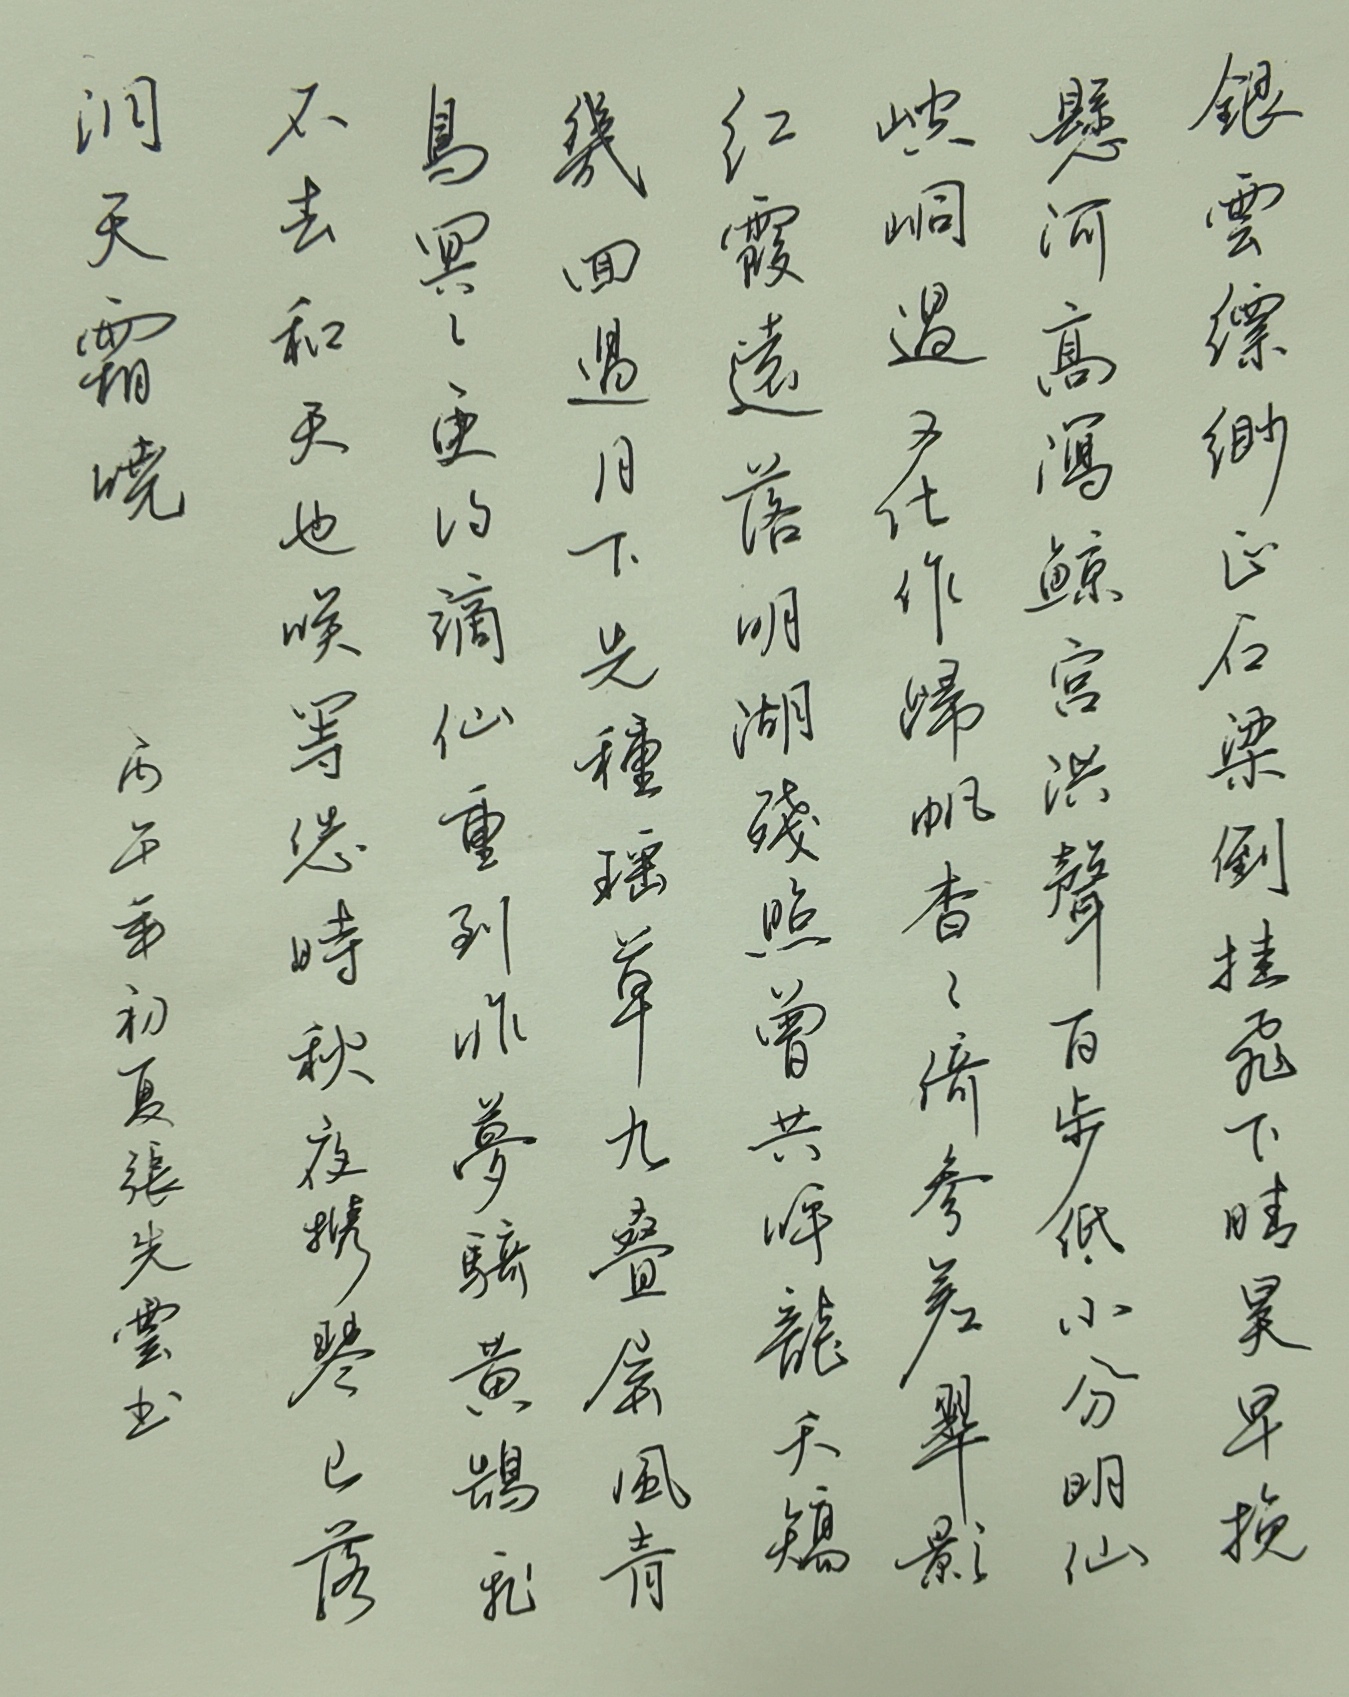 銀雲縹緲正石梁倒挂飛下晴昊早挽
懸河高瀉鯨宮洪聲百步低小分明仙
峽峒過又仕作歸帆杳〻倚參差翠影
紅霞遠落明湖殘照曾共呼龍夭矯
幾回過月下先種瑶草九疊屏風青
鳥冥〻更約謫仙重到昨夢騎黃鵠飛
不去和天也咲等待時秋夜携琴已落
洞天霜曉
丙午年初夏張先雲书